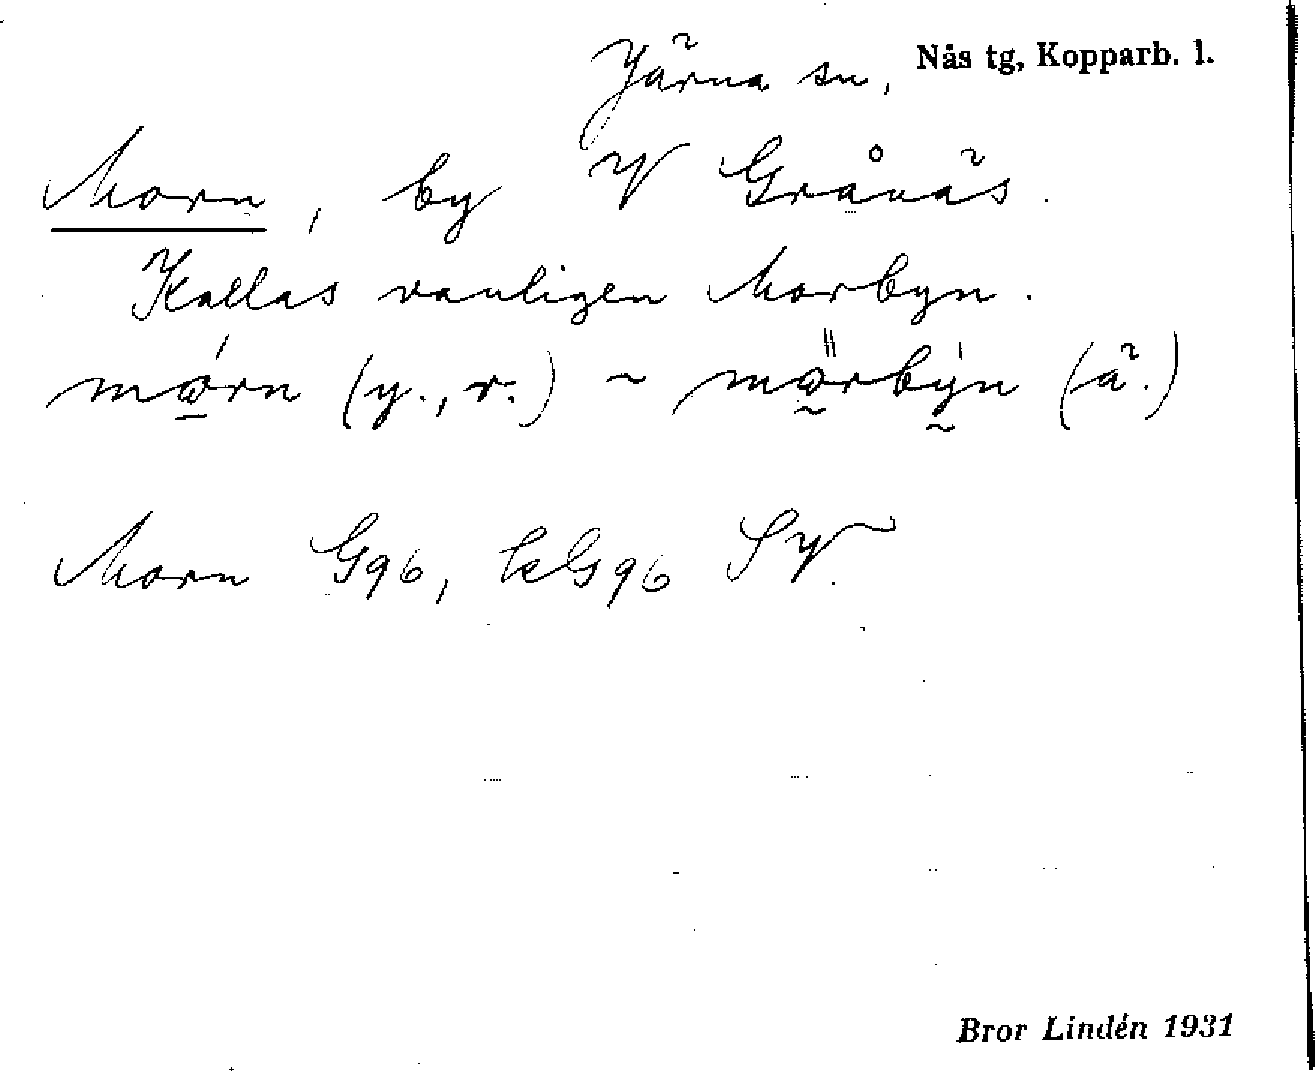 Järna sn, Nås tg, Kopparb. l.
Morn, by V Gråväs.
Kallas vanligen Morbyn.
mo̲rn (y., r.) ~ mo̰rby̰n (ä.)
Morn G96, kG96 SV.
Bror Lindén 1931